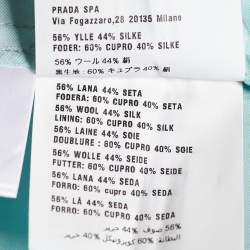 PRADA SPA
Via Fogazzaro, 28 20135 Milano
56% YLLE 44% SILKE
FODER: 60% CUPRO 40% SILKE
56% ウール 44% 絹
裏生地: 60% キュプラ 40% 絹
56% LANA 44% SETA
FODERA: 60% CUPRO 40% SETA
56% WOOL 44% SILK
LINING: 60% CUPRO 40% SILK
56% LAINE 44% SOIE
DOUBLURE : 60% CUPRO 40% SOIE
56% WOLLE 44% SEIDE
FUTTER: 60% CUPRO 40% SEIDE
56% LANA 44% SEDA
FORRO: 60% CUPRO 40% SEDA
56% LÃ 44% SEDA
FORRO: 60% CUPRO 40% SEDA
56% صوف 44% حرير
البطانة: 60% كوبرو 40% حرير